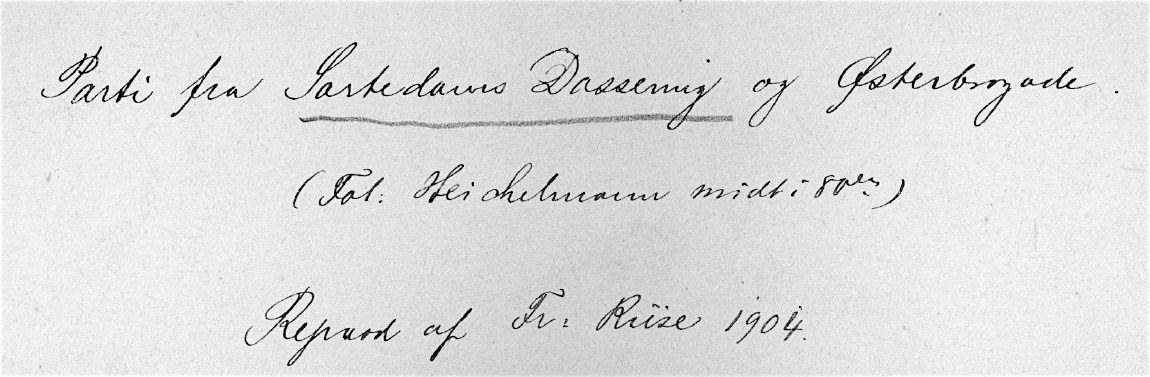 Parti fra Sortedams Dossering og Østerbrogade.
(Fot: Heichelmann midt i 80'erne)
Reprod af Fr: Riise 1904.